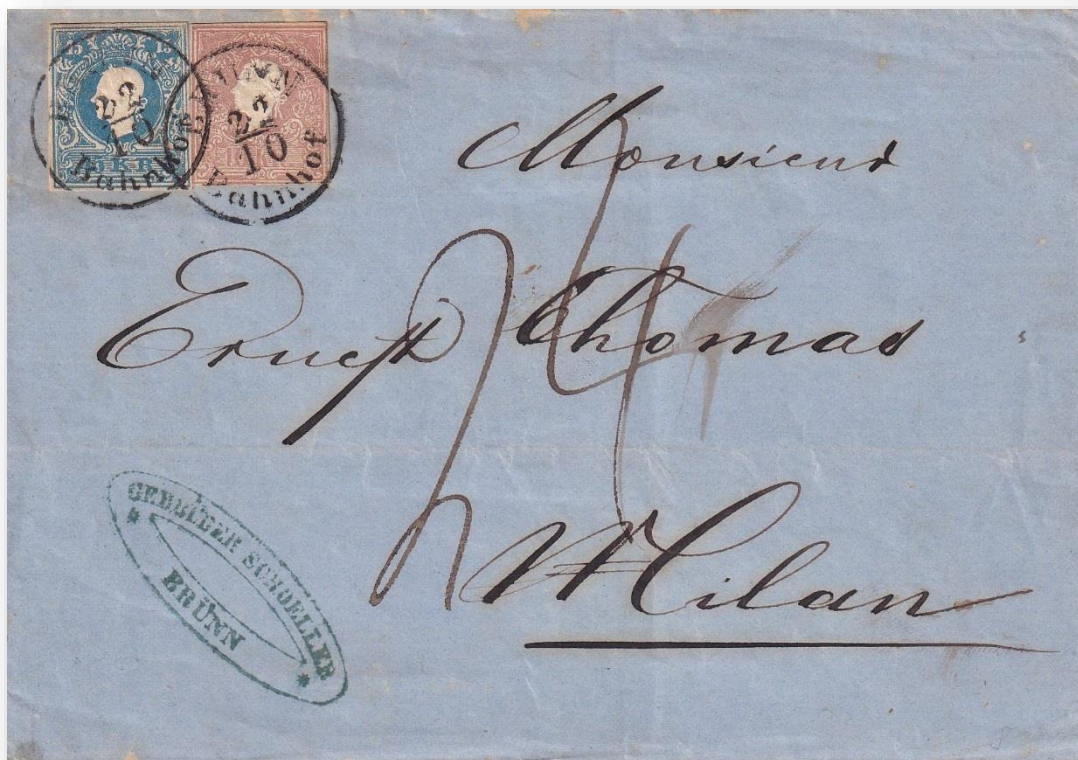 15 KR
10
BRÜNN
22
10
Bahnhof
BRÜNN
22
10
Bahnhof
Monsieur
Ernest Thomas
Milan
GEBRÜDER SCHOELLER
BRÜNN